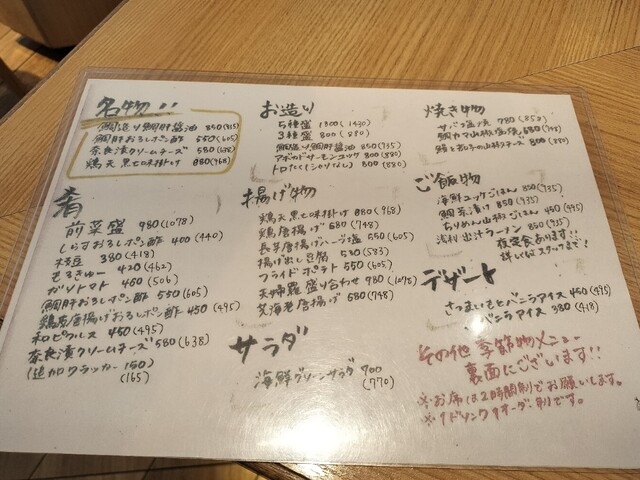 名物!!
鯛造り鯛肝醤油 850(935)
鯛肝おろしポン酢 550(605)
奈良漬クリームチーズ 580(638)
鶏天黒七味掛け 880(968)
肴
前菜盛 980(1078)
しらすおろしポン酢 400(440)
枝豆 380(418)
もろきゅー 420(462)
ガリトマト 460(506)
鯛肝おろしポン酢 550(605)
鶏皮唐揚げおろしポン酢 450(495)
和ピクルス 450(495)
奈良漬クリームチーズ 580(638)
(追加クラッカー 150)
(165)
お造り
5種盛 1300(1430)
3種盛 800(880)
鯛造り鯛肝醤油 850(935)
アボカドサーモンユッケ 800(880)
トロたく(シャリなし) 800(880)
揚げ物
鶏天黒七味掛け 880(968)
鶏唐揚げ 680(748)
長芋唐揚げハーブ塩 550(605)
揚げ出し豆腐 530(583)
フライドポテト 550(605)
天婦羅盛り合わせ 980(1078)
芝海老唐揚げ 680(748)
サラダ
海鮮グリーンサラダ 700
(770)
焼き物
サバ塩焼 780(858)
鯛カマ山椒塩焼 680(748)
800(880)
ご飯物
海鮮ユッケごはん 850(935)
鯛茶漬け 850(935)
ちりめん山椒ごはん 450(495)
浅利出汁ラーメン 850(935)
夜定食あります!!
詳しくはスタッフまで!
デザート
さつまいもとバニラアイス 450(495)
バニラアイス 380(418)
その他 季節物メニュー
裏面にございます!!
※お席は2時間制でお願いします。
※1ドリンク1オーダー制です。